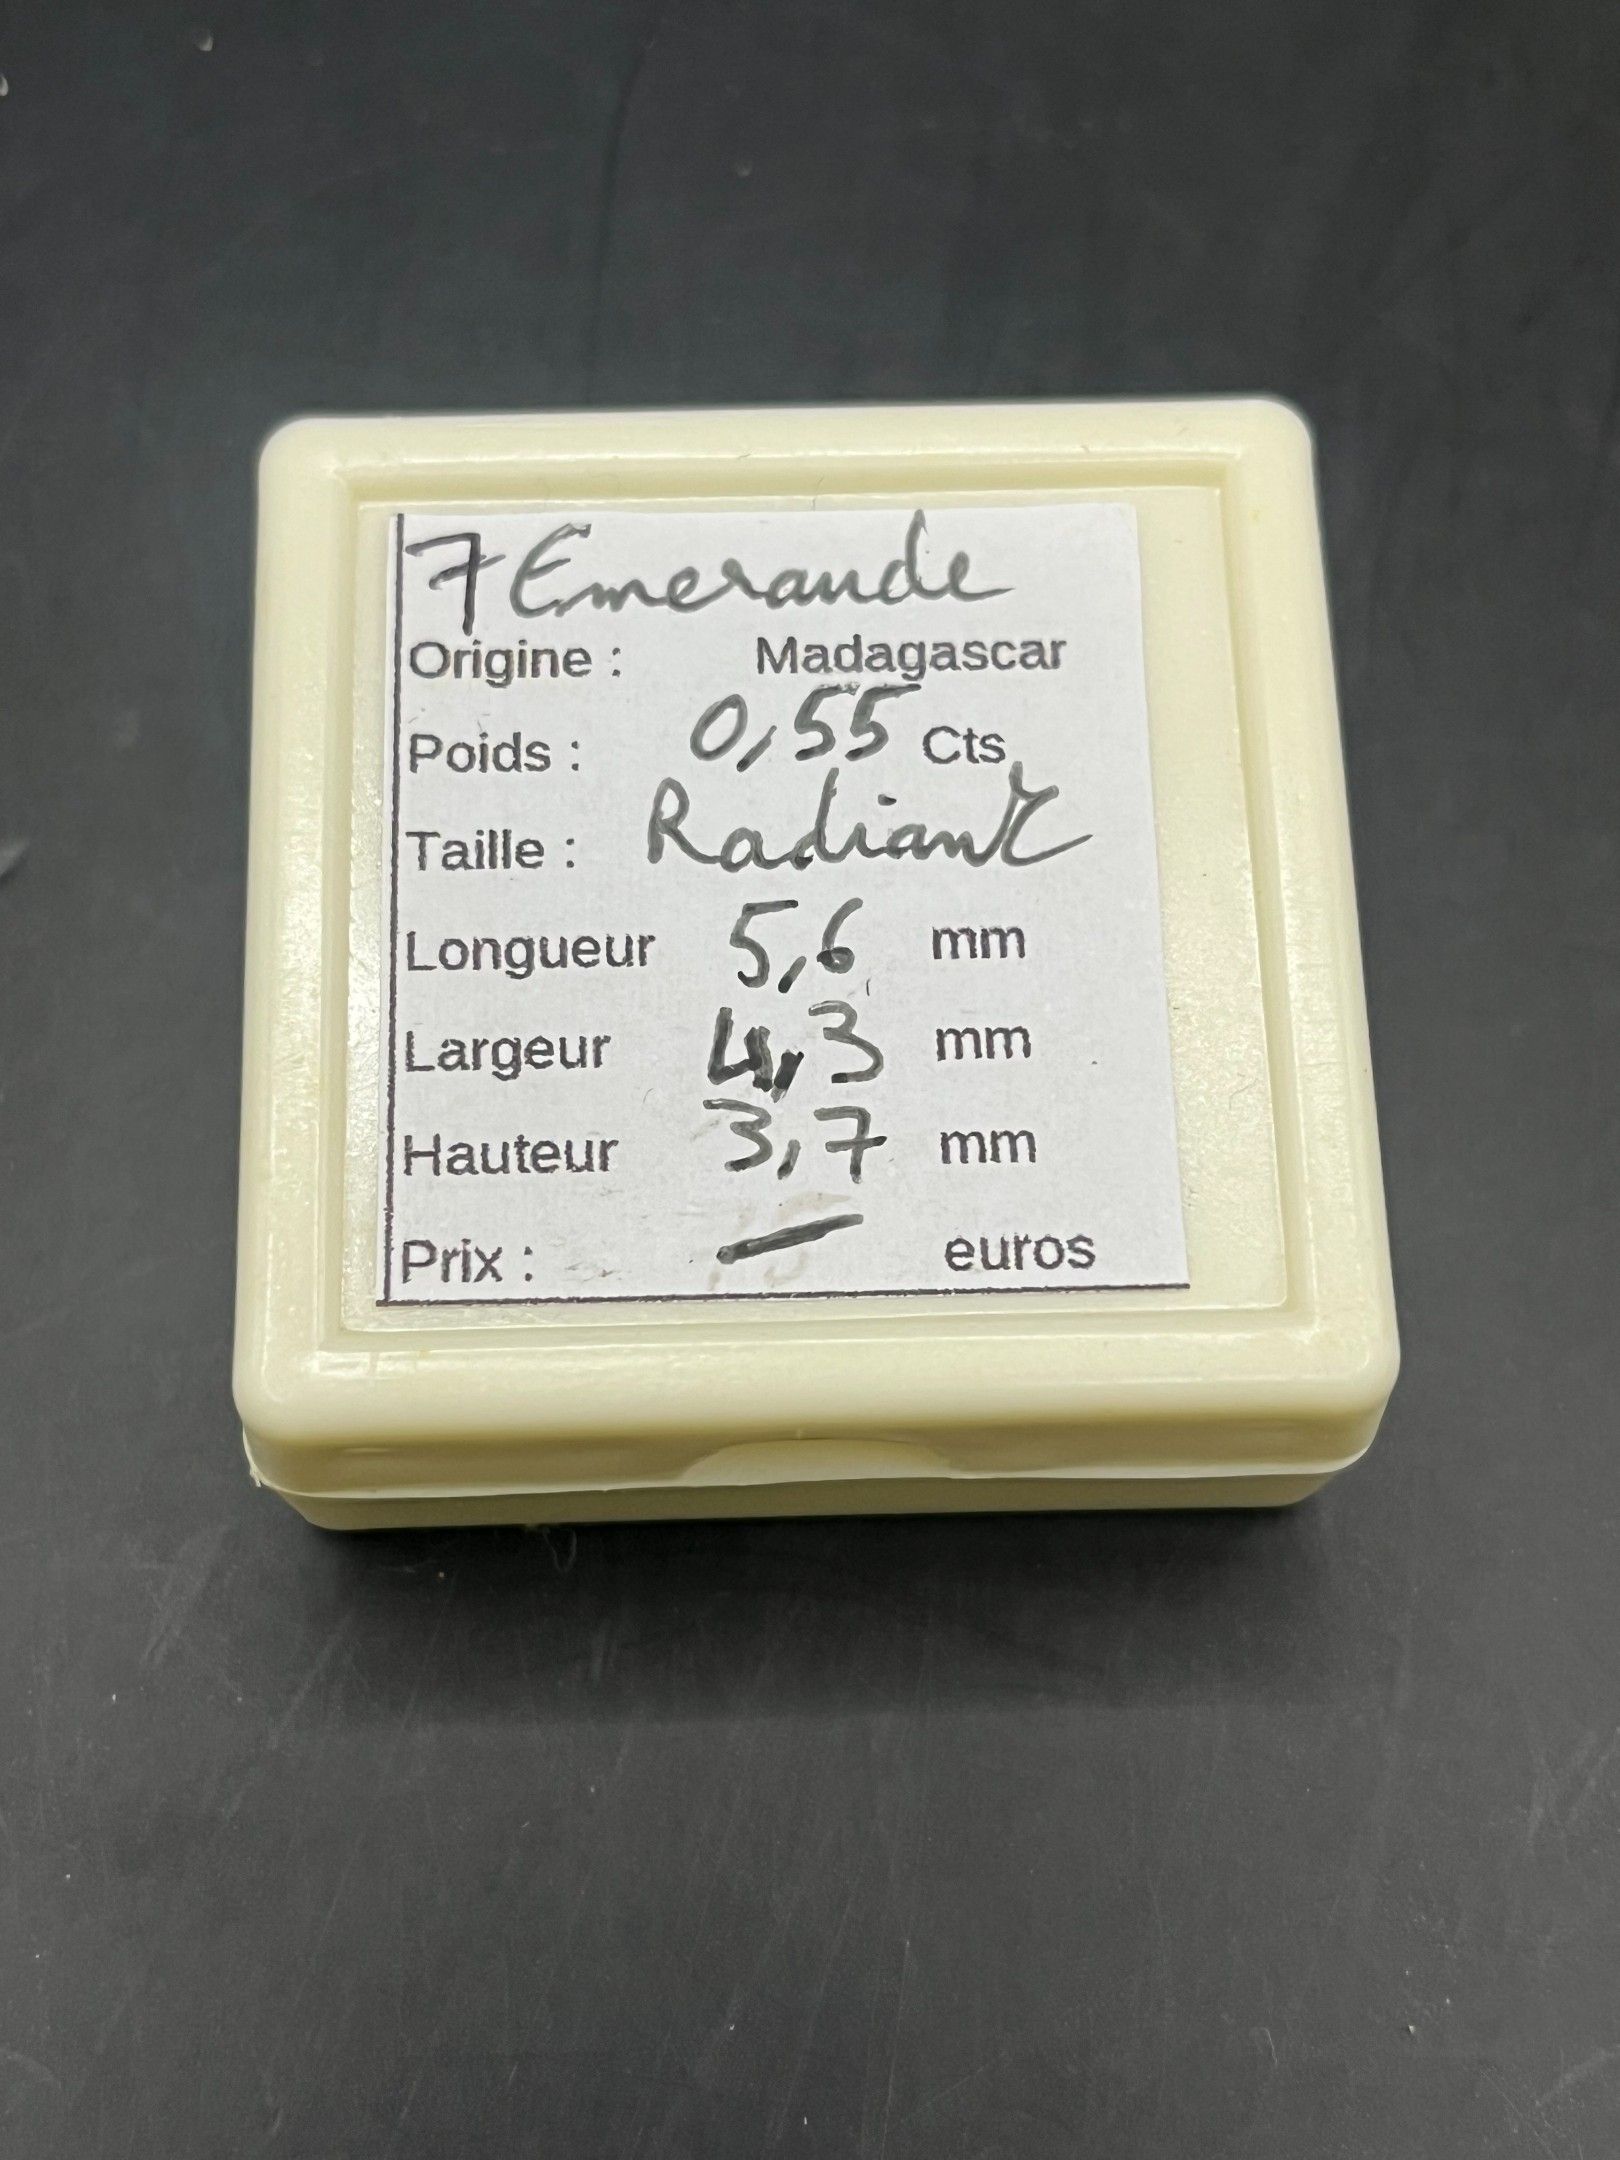 7 Emeraude
Origine : Madagascar
Poids : 0,55 Cts
Taille : Radiant
Longueur 5,6 mm
Largeur 4,3 mm
Hauteur 3,7 mm
Prix : — euros